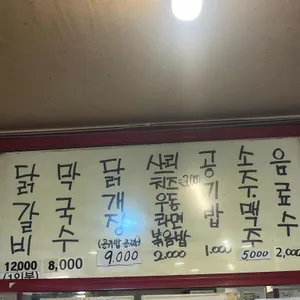 닭갈비
12000
(1인분)
막국수
8,000
닭개장
(공기밥 포함)
9.000
사리
치즈 3,000
우동
라면
볶음밥
2.000
공기밥
1.000
소주
맥주
5000
음료수
2,000